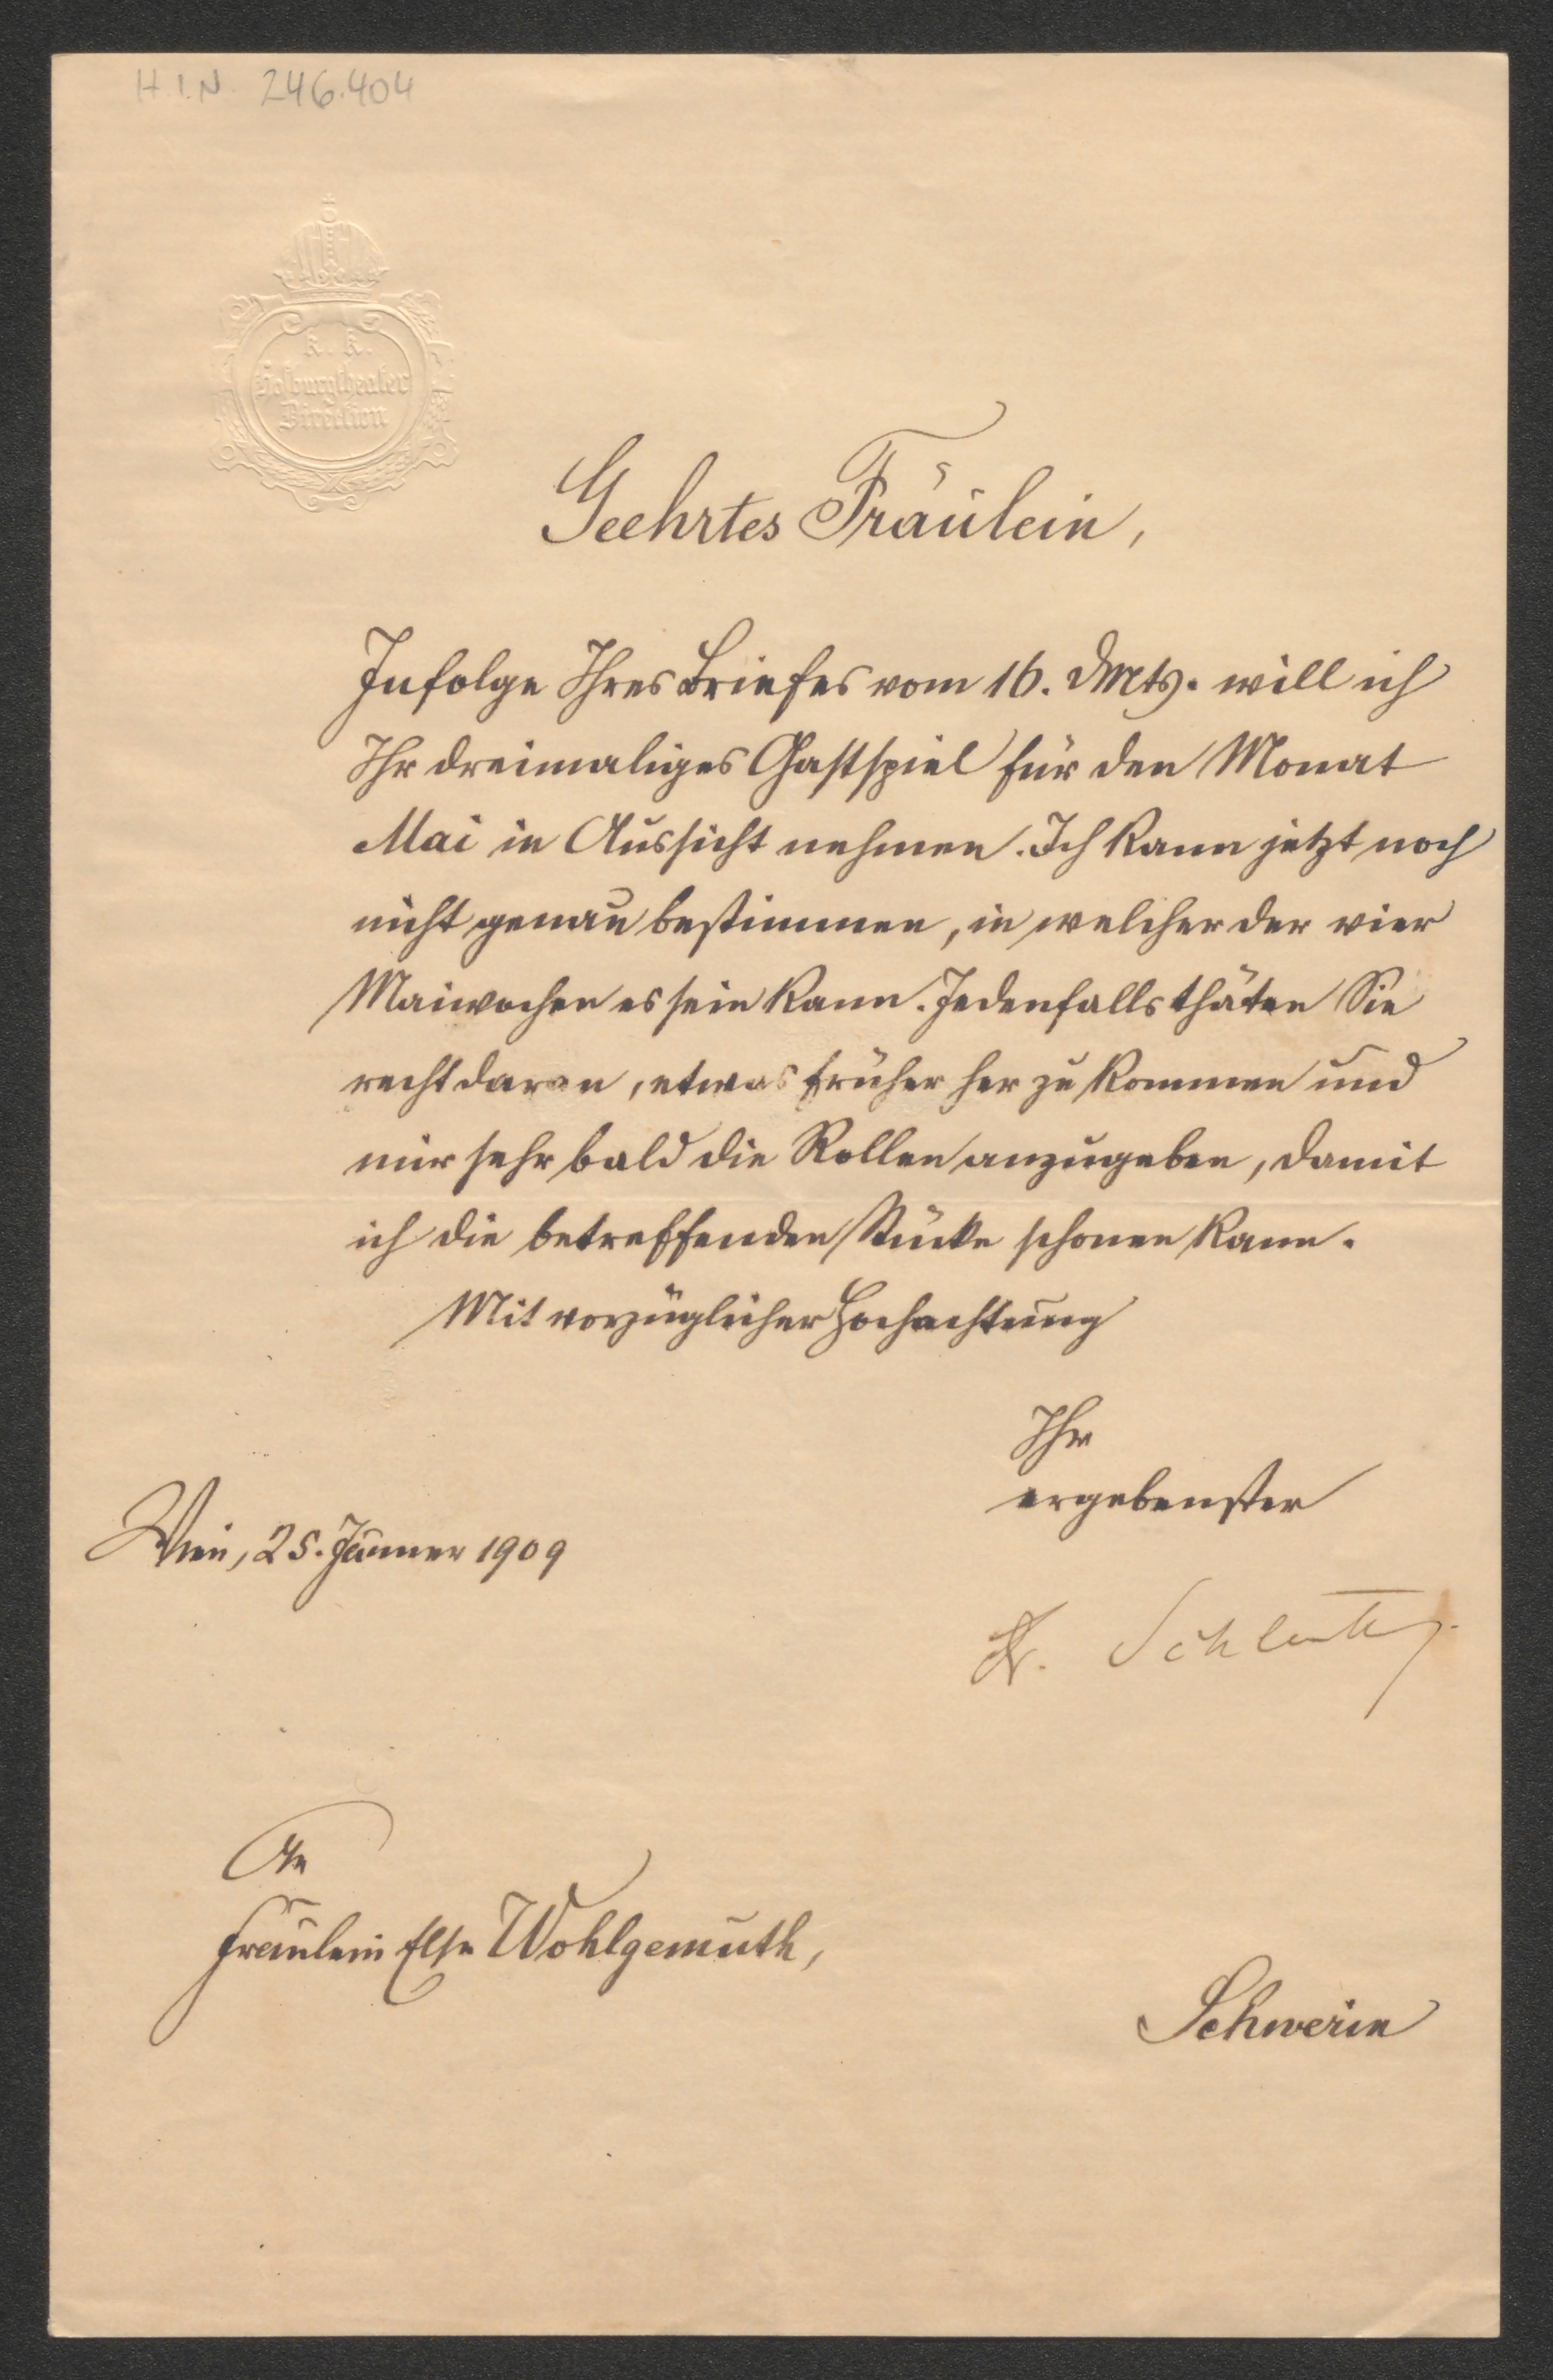 H.I.N. 246.404
K. K.
Hofburgtheater
Direction
Geehrtes Fräulein,
Infolge Ihres Briefes vom 16. dMts. will ich
Ihr dreimaliges Gastspiel für den Monat
Mai in Aussicht nehmen. Ich kann jetzt noch
nicht genau bestimmen, in welcher der vier
Maiwochen es sein kann. Jedenfalls thäten Sie
recht daran, etwas früher her zu kommen und
mir sehr bald die Rollen anzugeben, damit
ich die betreffenden Stücke schonen kann.
Mit vorzüglicher Hochachtung
Ihr
ergebenster
Wien, 25. Jänner 1909
Dr. Schlenther
An
Fräulein Else Wohlgemuth,
Schwerin